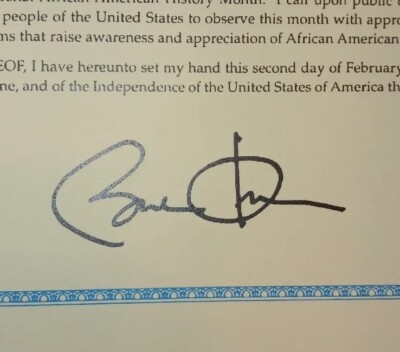 African American History Month. I call upon public
people of the United States to observe this month with
that raise awareness and appreciation of African American
I have hereunto set my hand this second day of February
and of the Independence of the United States of America